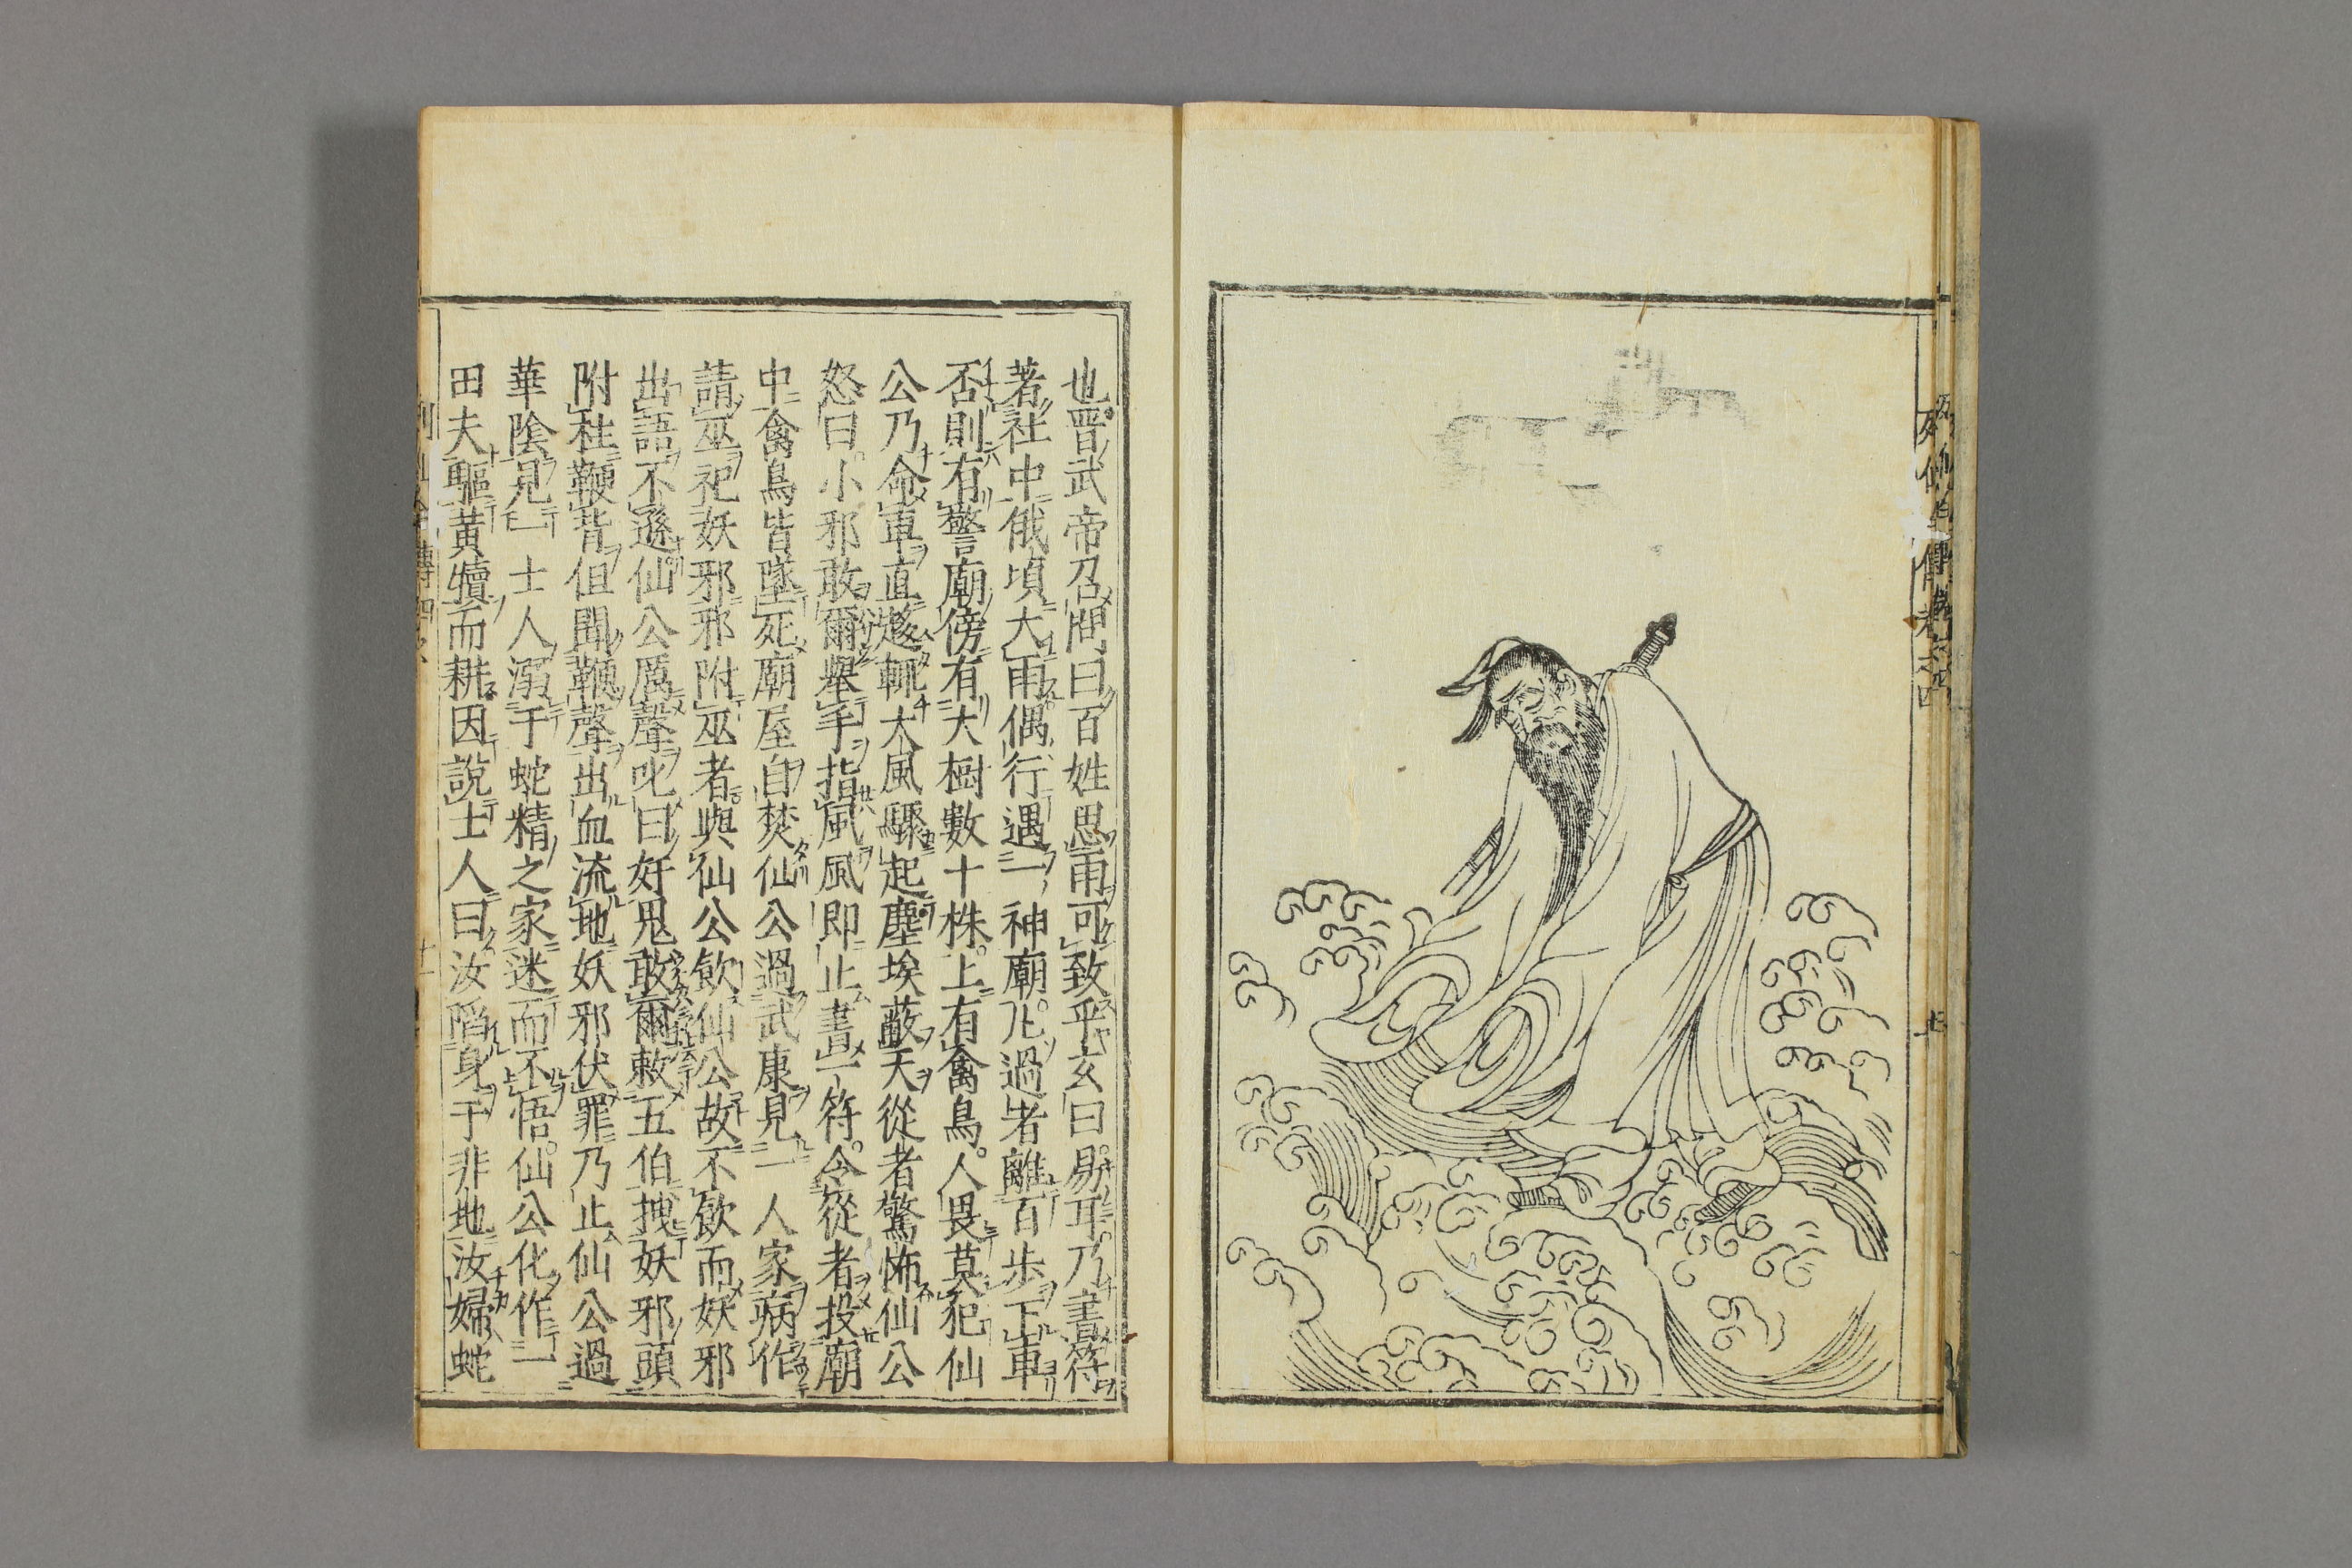 也晋武帝召問曰百姓思雨可致乎玄曰易耳乃書符
著社中俄頃大雨偶行遇一神廟凡過者離百歩下車
否則有警廟傍有大樹數十株上有禽鳥人畏莫犯仙
公乃命車直趍輒大風驟起塵埃蔽天從者驚怖仙公
怒曰小邪敢爾舉手指風風即止書一符令從者投廟
中禽鳥皆墜死廟屋自焚仙公過武康見一人家病作
請巫祀妖邪邪附巫者與仙公飲仙公故不飲而妖邪
出語不遜仙公厲聲叱曰奸鬼敢爾敕五伯拽妖邪頭
附柱鞭背但聞鞭聲出血流地妖邪伏罪乃止仙公過
華陰見一士人溺于蛇精之家迷而不悟仙公化作一
田夫驅黄犢而耕因說士人曰汝陷身于非地汝婦蛇